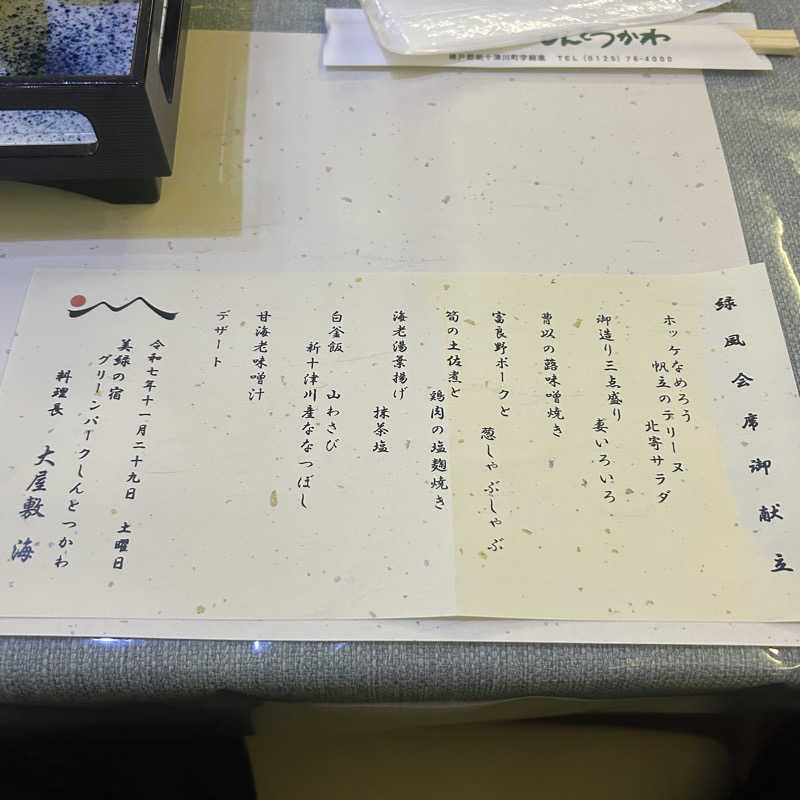 緑風会席御献立
ホッケなめろう
帆立のテリーヌ
北寄サラダ
御造り三点盛り
妻いろいろ
曹以の蕗味噌焼き
富良野ポークと
葱しゃぶしゃぶ
筍の土佐煮と
鶏肉の塩麹焼き
海老湯葉揚げ
抹茶塩
白釜飯 山わさび
新十津川産ななつぼし
甘海老味噌汁
デザート
令和七年十一月二十九日 土曜日
美緑の宿
グリーンパークしんとつかわ
料理長 大屋敷 海
んとつかわ
樺戸郡新十津川町字総進 TEL (0125) 76-4000